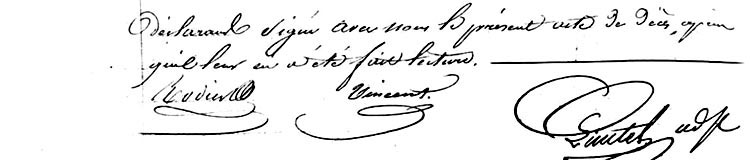 déclarans signé avec nous le présent acte de décès, après
qu'il leur en a été fait lecture.
Vincent.
adjt